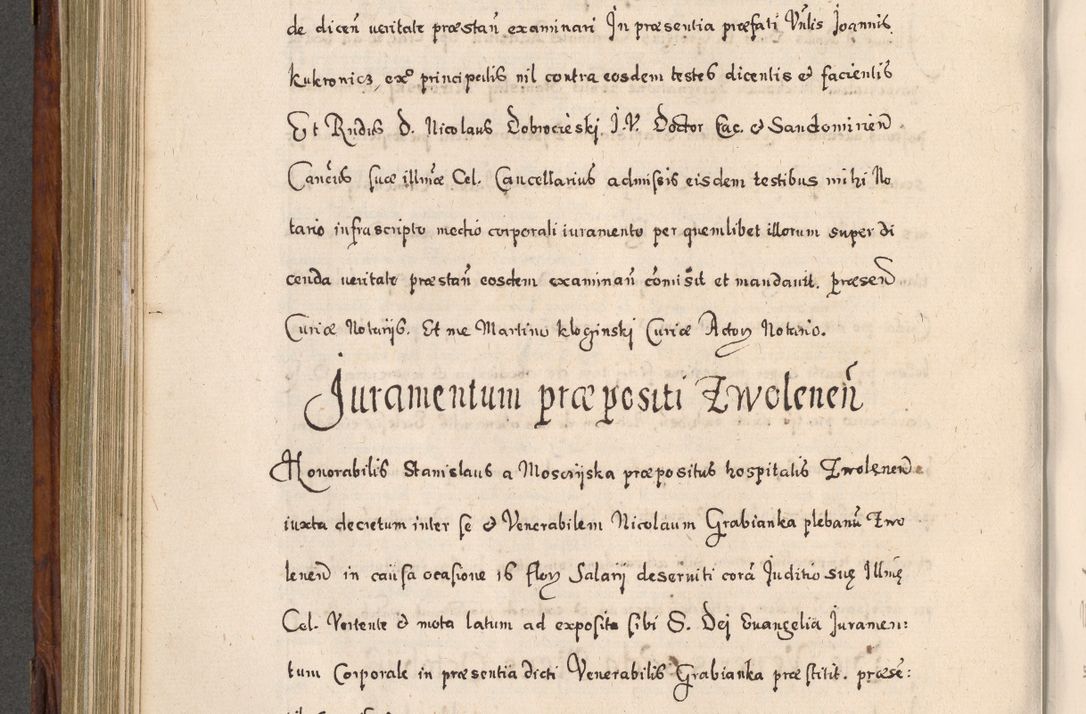 de diceñ ueritate præstañ examinari In præsentia præfati Vnlis Joannis
Kukronicz, exº principalis nil contra eosdem testes dicentis et facientis
Et Rndus D. Nicolaus Dobrocieski J. V. Doctor Cac. et Sandomirieñ
Cancus suæ illmæ Cel. Cancellarius admissis eisdem testibus mihi No
tario infrascripto medio corporali iuramento per quemlibet illorum super di
cenda ueritate præstañ eosdem examinañ comisit et mandauit. præseñ
Curiæ Notarijs. Et me Martino kłoginski Curiæ Actoꝝ Notario.
Juramentum præpositi Zwoleneñ
Honorabilis Stanislaus a Moscrijska præpositus hospitalis Zwoleneñ
iuxta decretum inter se et Venerabilem Nicolaum Grabianka plebanū Zwo
leneñ in causa ocasione 16 floꝝ Salarij deseruiti corā Juditio suę Illmę
Cel. Vertente et mota latum ad exposita sibi S. Dej Euangelia Juramen:
tum Corporale in præsentia dicti Venerabilis Grabianka præstitit. præsē: